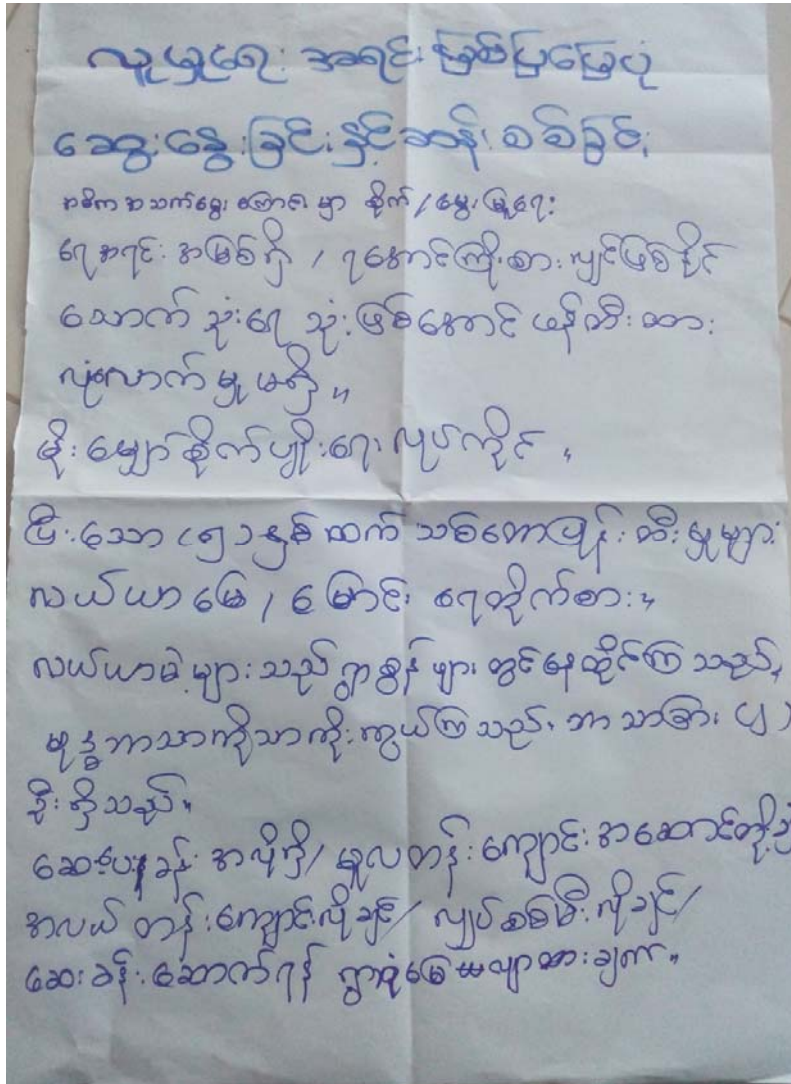 လူမှုရေး အရင်းအမြစ်ပြမြေပုံ
ဆွေးနွေးခြင်းနှင့်ဆန်းစစ်ခြင်း
အဓိက အသက်မွေးကြောင်းမှာ စိုက်/မွေးမြူရေး
ရေအရင်းအမြစ်ရှိ/ ရအောင်ကြိုးစားလျှင်ဖြစ်နိုင်
သောက်သုံးရေ သုံးဖြစ်အောင် ဖန်တီးထား
လုံလောက်မှုမရှိ။
မိုးမျှော်စိုက်ပျိုးရေးလုပ်ကိုင်။
ပြီးသော (၅)နှစ်ထက် သစ်တောပြုန်းတီးမှုများ
လယ်ယာမြေ/ မြောင်း ရေတိုက်စား။
လယ်ယာမဲ့များသည်ရွာစွန်များတွင်နေထိုင်ကြသည်။
ဗုဒ္ဓဘာသာကိုသာကိုးကွယ်ကြသည်၊ ဘာသာခြား (၂)
ဦးရှိသည်။
ဆေးပေးခန်းအလိုရှိ/ မူလတန်းကျောင်းအဆောင်တိုးချဲ့
အလယ်တန်းကျောင်းလိုချင်/ လျှပ်စစ်မီးလိုချင်/
ဆေးခန်းဆောက်ရန် ရွာပိုင်မြေ လျာထားချက်။